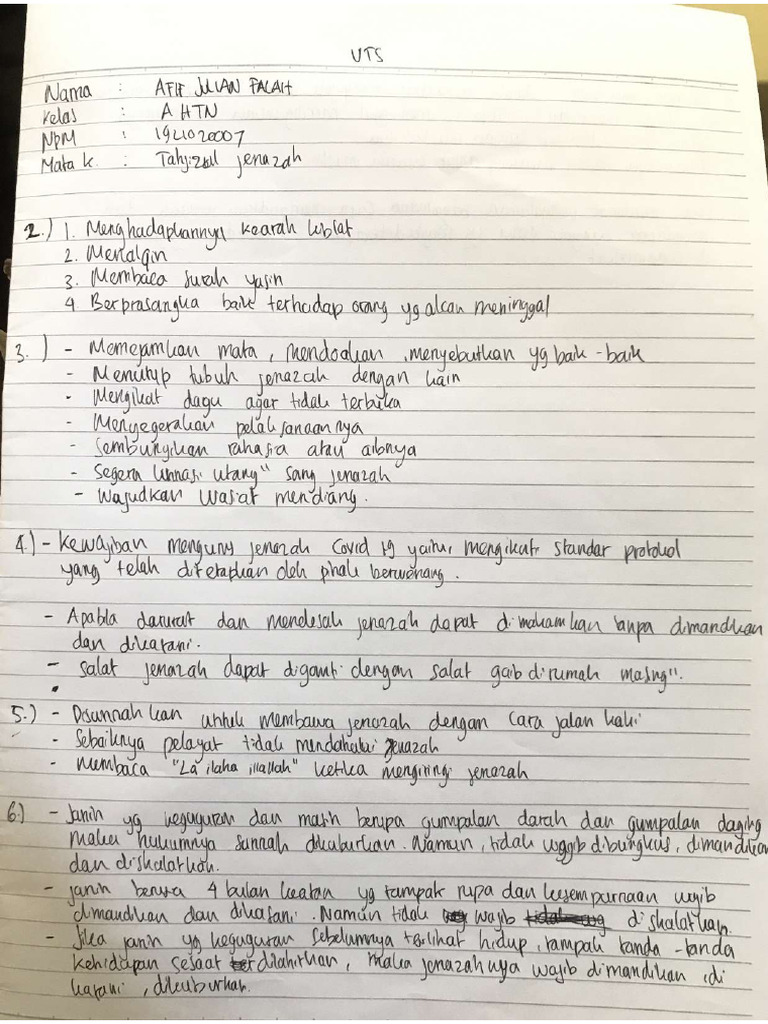 UTS
Nama : AFIF JULIAN FALAH
Kelas : A HTN
NPM : 1921020007
Mata k : Tahjizul jenazah
2.) 1. Menghadapkannya kearah kiblat
2. Mentalqin
3. Membaca surah yasin
4 Berprasangka baik terhadap orang yg akan meninggal
3.) - Memejamkan mata, mendoakan, menyebutkan yg baik-baik
- Menutup tubuh jenazah dengan kain
- Mengikat dagu agar tidak terbuka
- Menyegerakan pelaksanaannya
- Sembunyikan rahasia atau aibnya
- Segera lunnasi utang" sang jenazah
- Wajudkan wasiat mendiang.
4.) - Kewajiban mengurus jenazah Covid 19 yaitu, mengikuti standar protokol
yang telah ditetapkan oleh pihak berwenang.
- Apabila darurat dan mendesak jenazah dapat dimakamkan tanpa dimandikan
dan dikafani.
- Salat jenazah dapat diganti dengan salat gaib dirumah masing".
5.) - Disunnahkan untuk membawa jenazah dengan cara jalan kaki
- Sebaiknya pelayat tidak mendahului jenazah
- Membaca "La ilaha illallah" ketika mengiringi jenazah
6.) - Janin yg keguguran dan masih berupa gumpalan darah dan gumpalan daging
maka hukumnya sunnah dikuburkan. Namun, tidak wajib dibungkus, dimandikan
dan dishalatkan.
- janin berusia 4 bulan keatas yg tampak rupa dan kesempurnaan wajib
dimandikan dan dikafani. Namun tidak wajib dishalatkan.
- Jika janin yg keguguran sebelumnya terlihat hidup, tampak tanda-tanda
kehidupan sesaat dilahirkan, maka jenazahnya wajib dimandikan, di
kafani, dikuburkan.